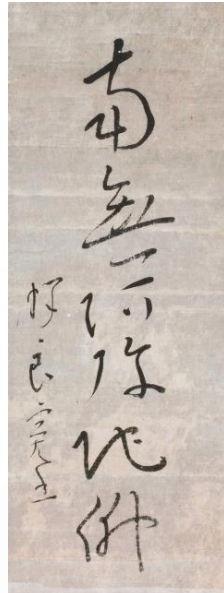 南無阿弥陀仏
釈良寛書